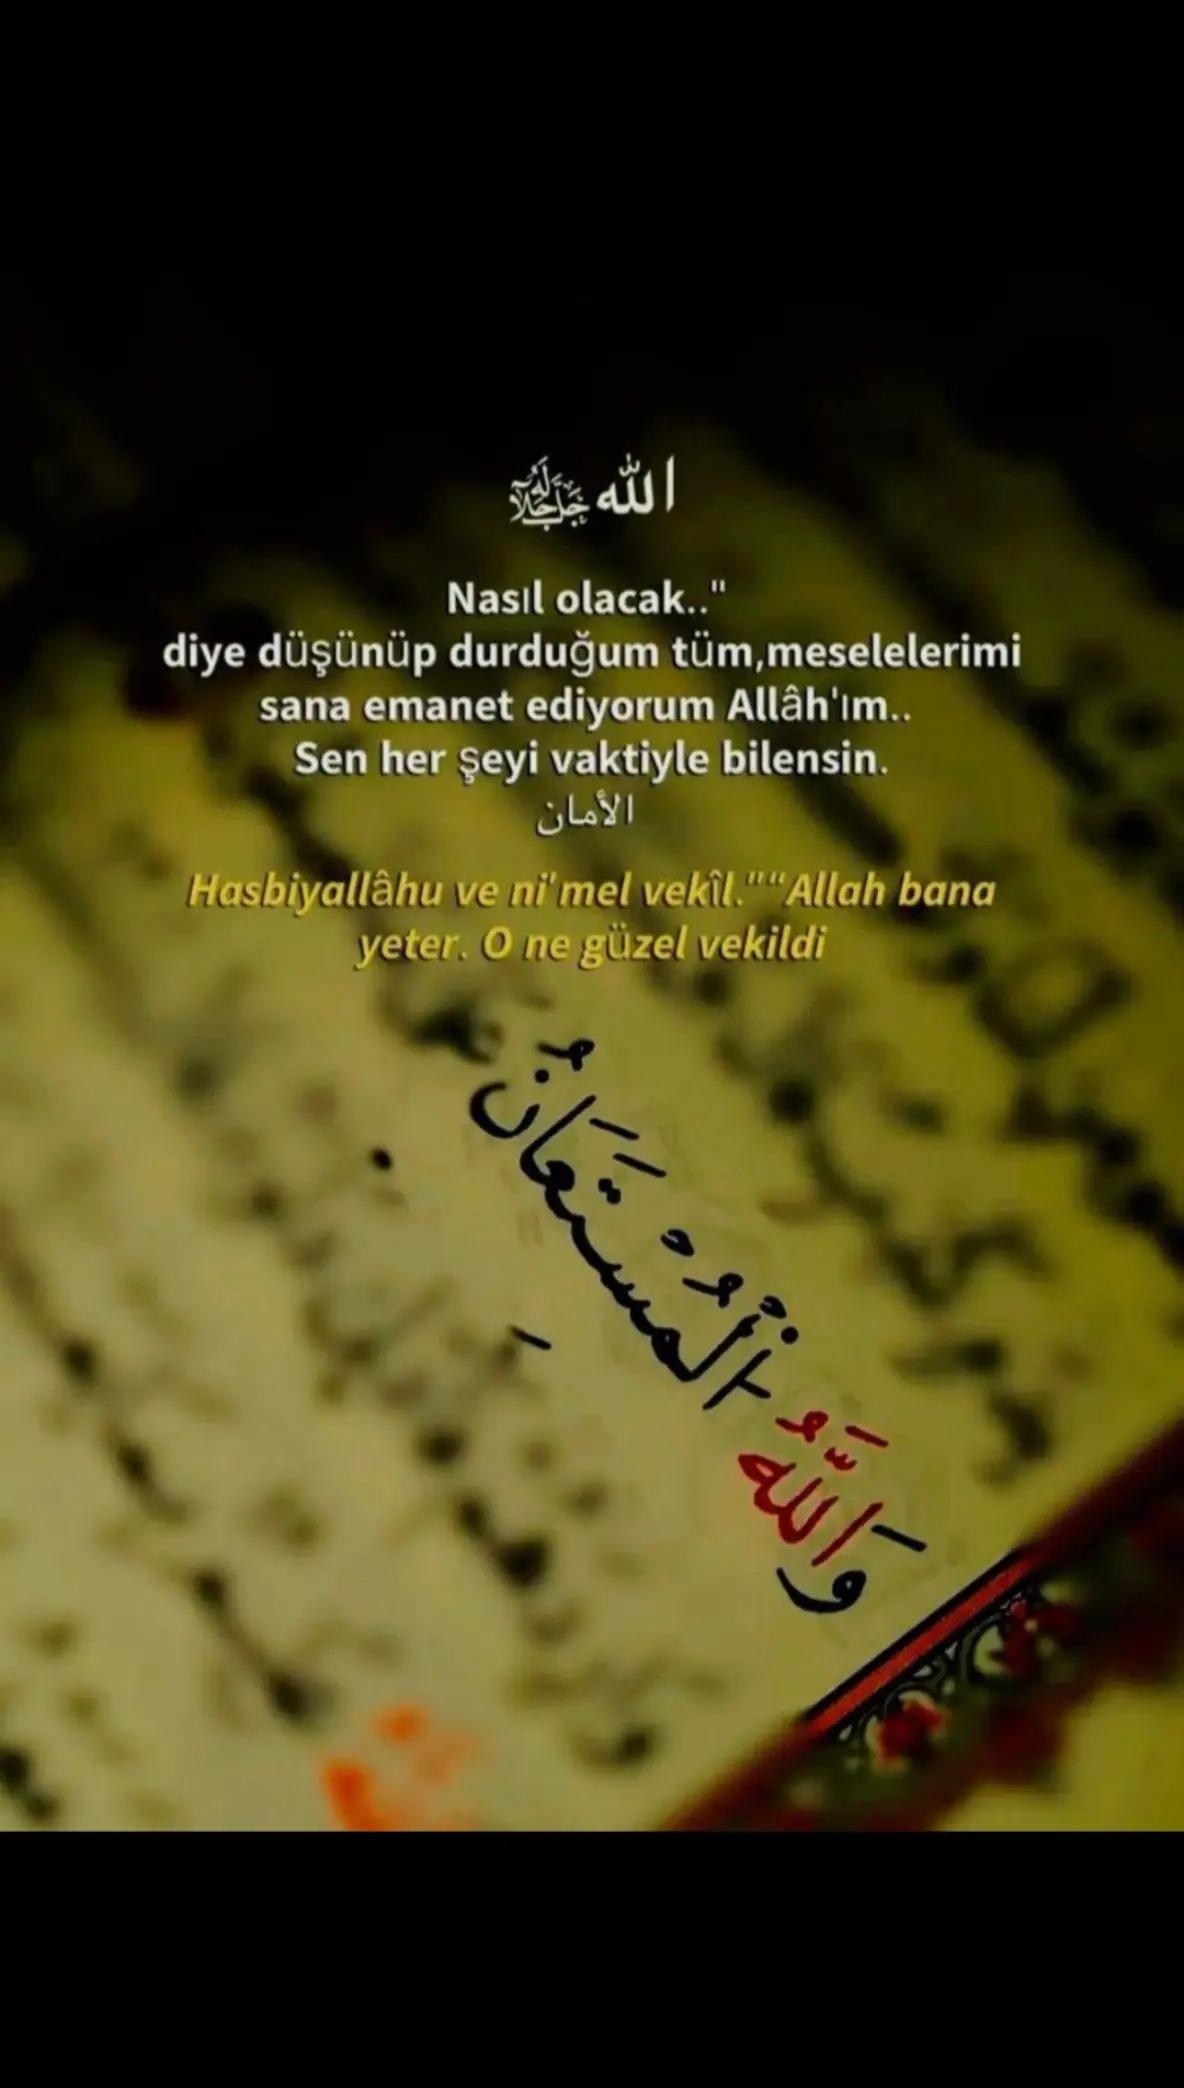 الله جل جلاله
Nasıl olacak.."
diye düşünüp durduğum tüm,meselelerimi
sana emanet ediyorum Allâh'ım..
Sen her şeyi vaktiyle bilensin.
الأمان
Hasbiyallâhu ve ni'mel vekîl."“Allah bana
yeter. O ne güzel vekildi
وَاللَّهُ الْمُسْتَعَانُ